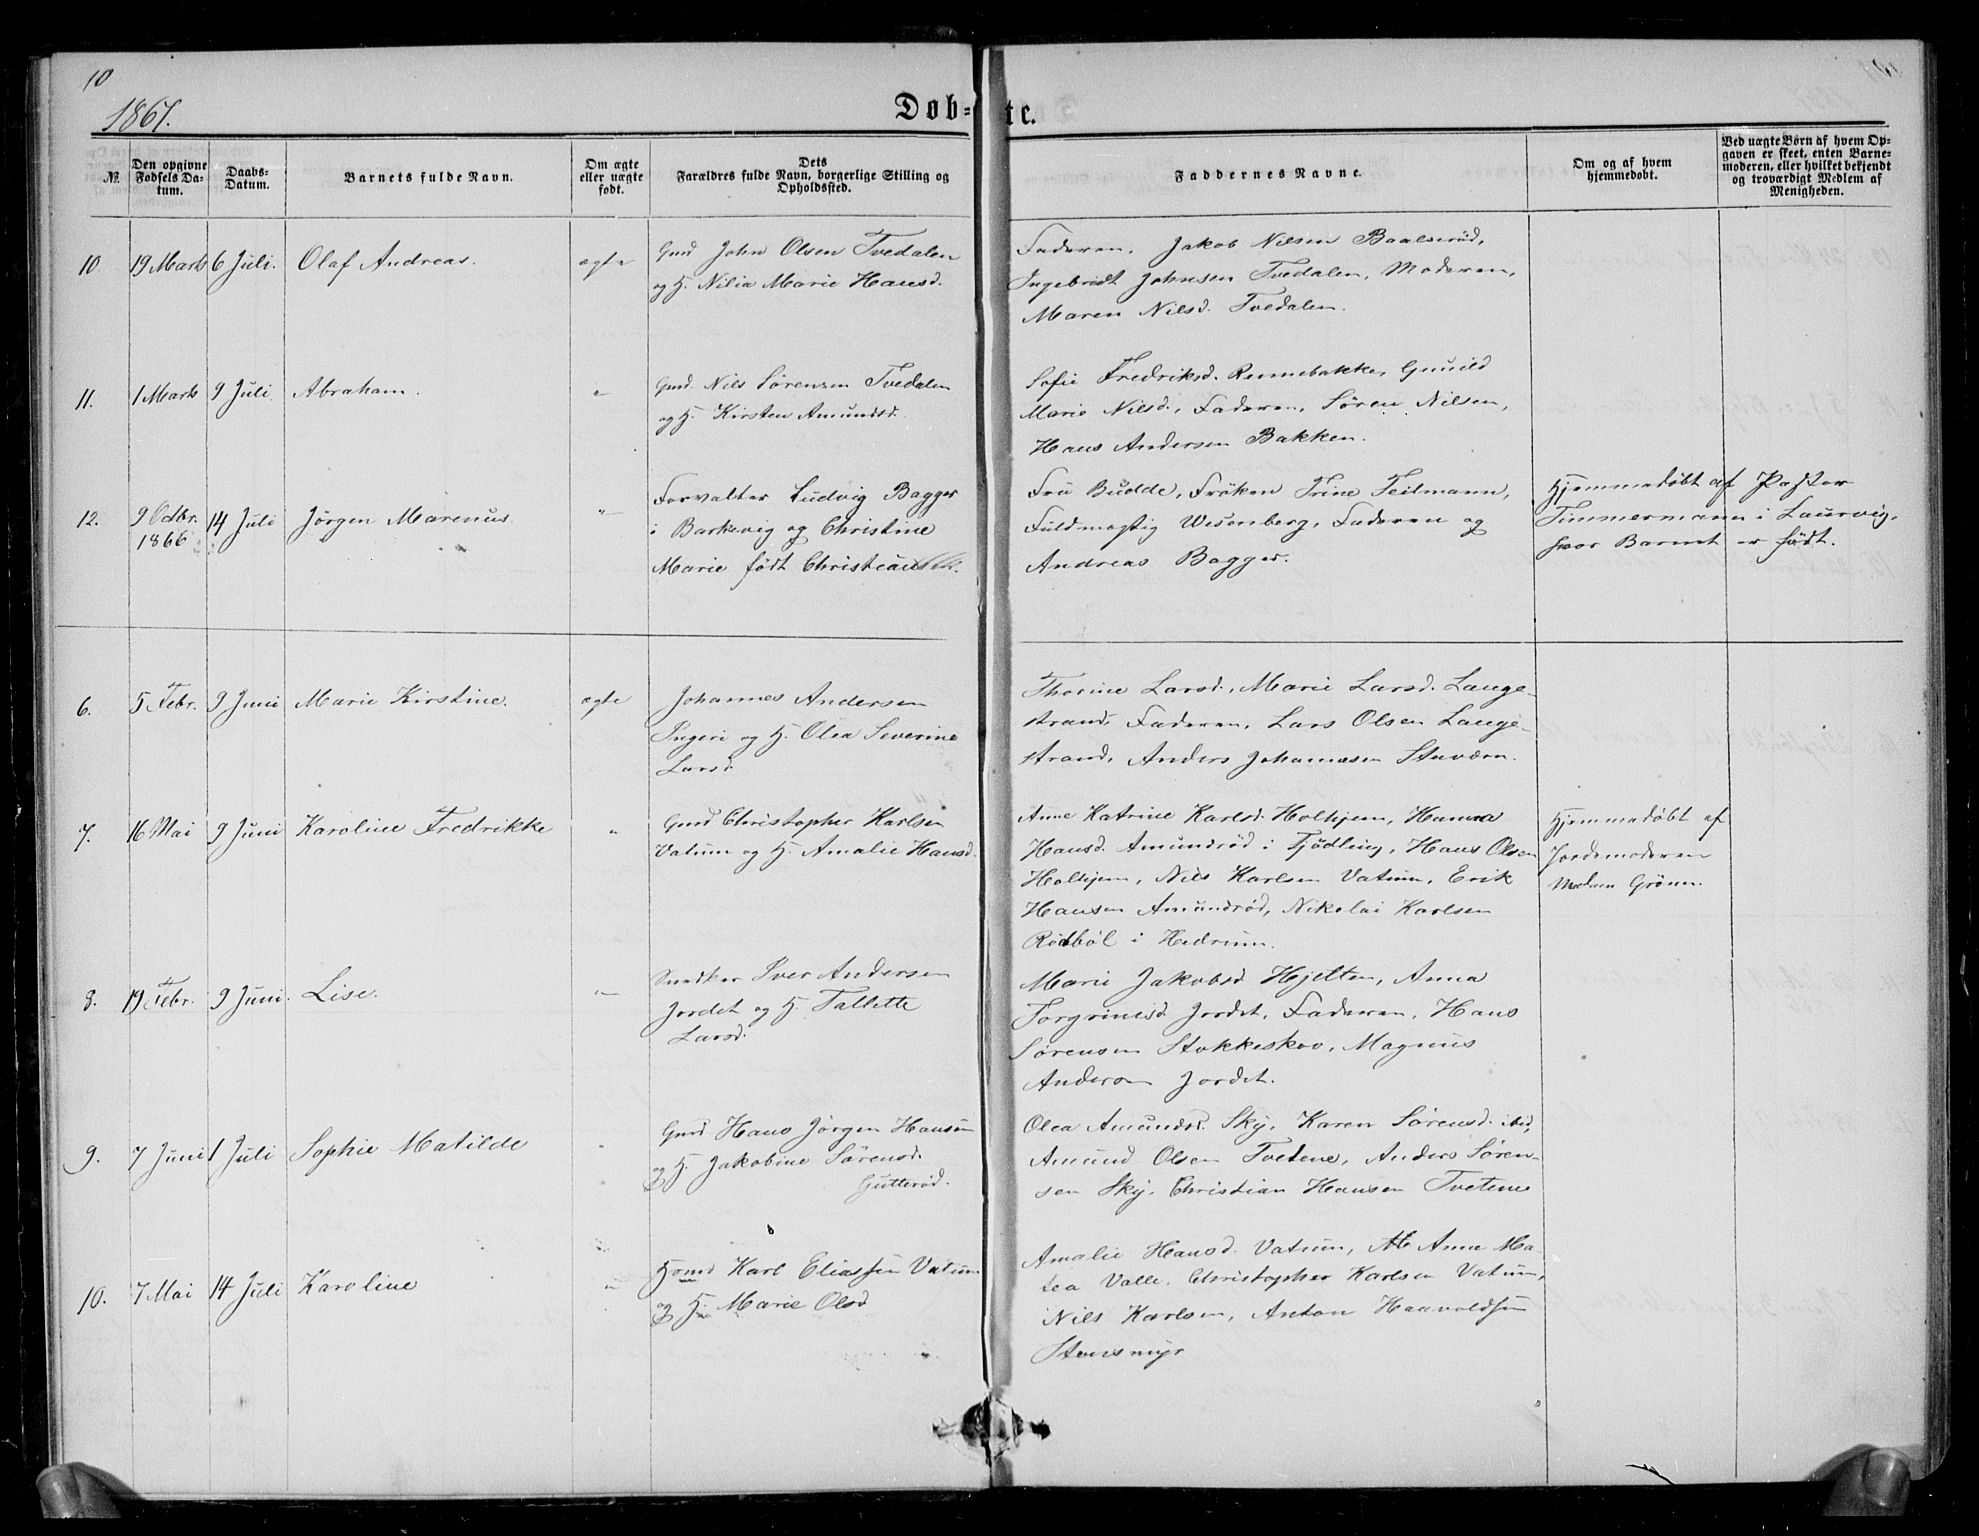 10
1867.
Døb-
te.
№
Den opgivne Fødsels Da-tum.
Daabs-Datum.
Barnets fulde Navn.
Om ægte eller uægte født.
Dets Forældres fulde Navn, borgerlige Stilling og Opholdssted.
Faddernes Navne.
Om og af hvem hjemmedøbt.
Ved uægte Børn af hvem Op-gaven er skeet, enten Barne-moderen, eller hvilket bekjendt og troværdigt Medlem af Menigheden.
10. 19 Marts 6 Juli. Olaf Andreas. ægte
Gmd John Olsen Tvedalen
og H. Nilia Marie Hansd.
Faderen, Jakob Nilsen Baalserød,
Ingebredt Johnsen Tvedalen, Moderen,
Maren Nilsd. Tvedalen.
11. 1 Marts 9 Juli Abraham. "
Gmd. Nils Sørensen Tvedalen
og H. Kirsten Amundsd.
Sofie Fredriksd. Rennebakke, Gunild
Marie Nilsd., Faderen, Søren Nilsen,
Hans Andersen Bakken.
12. 9 Octbr. 1866 14 Juli Jørgen Marenus. "
Forvalter Ludvig Bagger
i Barkevig og Christine
Marie født
Fru Budde, Frøken Trine Teilmann,
Fuldmægtig Wesenberg, Faderen og
Andreas Bagger.
Hjemmedøbt af Pastor
Timmermann i Laurvig,
hvor Barnet er født.
6. 5 Febr. 9 Juni Marie Kirstine. ægte
Johannes Andersen
Ingeri og H. Olea Severine
Larsd.
Thorine Larsd., Marie Larsd. Lange-
strand, Faderen, Lars Olsen Lange-
strand, Anders Johannesen Staværn.
7. 16 Mai 9 Juni Karoline Fredrikke "
Gmd Christopher Karlsen
Vatum og H. Amalie Hansd.
Anne Katrine Karlsd. Holhjem, Hanna
Hansd. Amundrød i Tjødling, Hans Olsen
Holhjem, Nils Karlsen Vatum, Erik
Hansen Amundrød, Nikolai Karlsen
Rødbøl i Hedrum.
Hjemmedøbt af
Jordemoderen
Madam Grønn.
8. 19 Febr. 9 Juni. Lise. "
Snedker Iver Andersen
Jordet og H. Tallette
Larsd.
Marie Jakobsd Hjelten, Anna
Torgrimsd Jordet, Faderen, Hans
Sørensen Stokkeskov, Magnus
Andersen Jordet.
9. 7 Juni 1 Juli Sophie Matilde "
Gmd Hans Jørgen Hansen
og H. Jakobine Sørensd.
Gutterød.
Olea Amundsd. Sky, Karen Sørensd. ibid,
Amund Olsen Tvetene, Anders Søren-
sen Sky, Christian Hansen Tvetene
10. 7 Mai 14 Juli Karoline "
Hsmd Karl Eliassen Vatum
og H. Marie Olsd
Amalie Hansd. Vatum, Anne Ma-
tea Valle, Christopher Karlsen Vatum,
Nils Karlsen, Anton Haavoldsen
Stensmyr